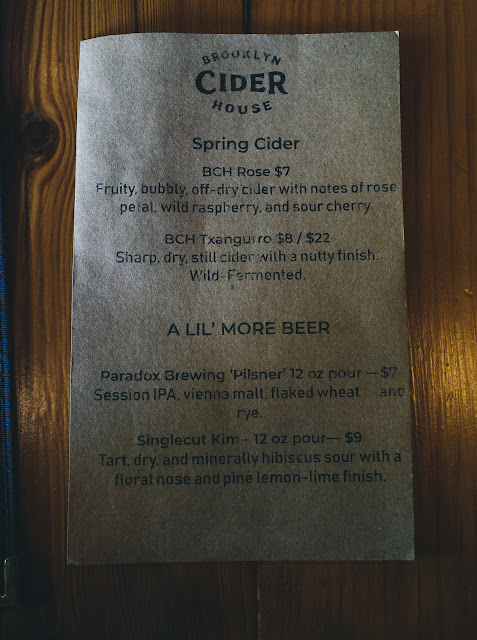 BROOKLYN
CIDER
HOUSE
Spring Cider
BCH Rose $7
Fruity, bubbly, off-dry cider with notes of rose
petal, wild raspberry, and sour cherry.
BCH Txanguirro $8 / $22
Sharp, dry, still cider with a nutty finish.
Wild-Fermented.
A LIL' MORE BEER
Paradox Brewing 'Pilsner' 12 oz pour — $7
Session IPA, vienna malt, flaked wheat and
rye.
Singlecut Kim - 12 oz pour— $9
Tart, dry, and minerally hibiscus sour with a
floral nose and pine lemon-lime finish.